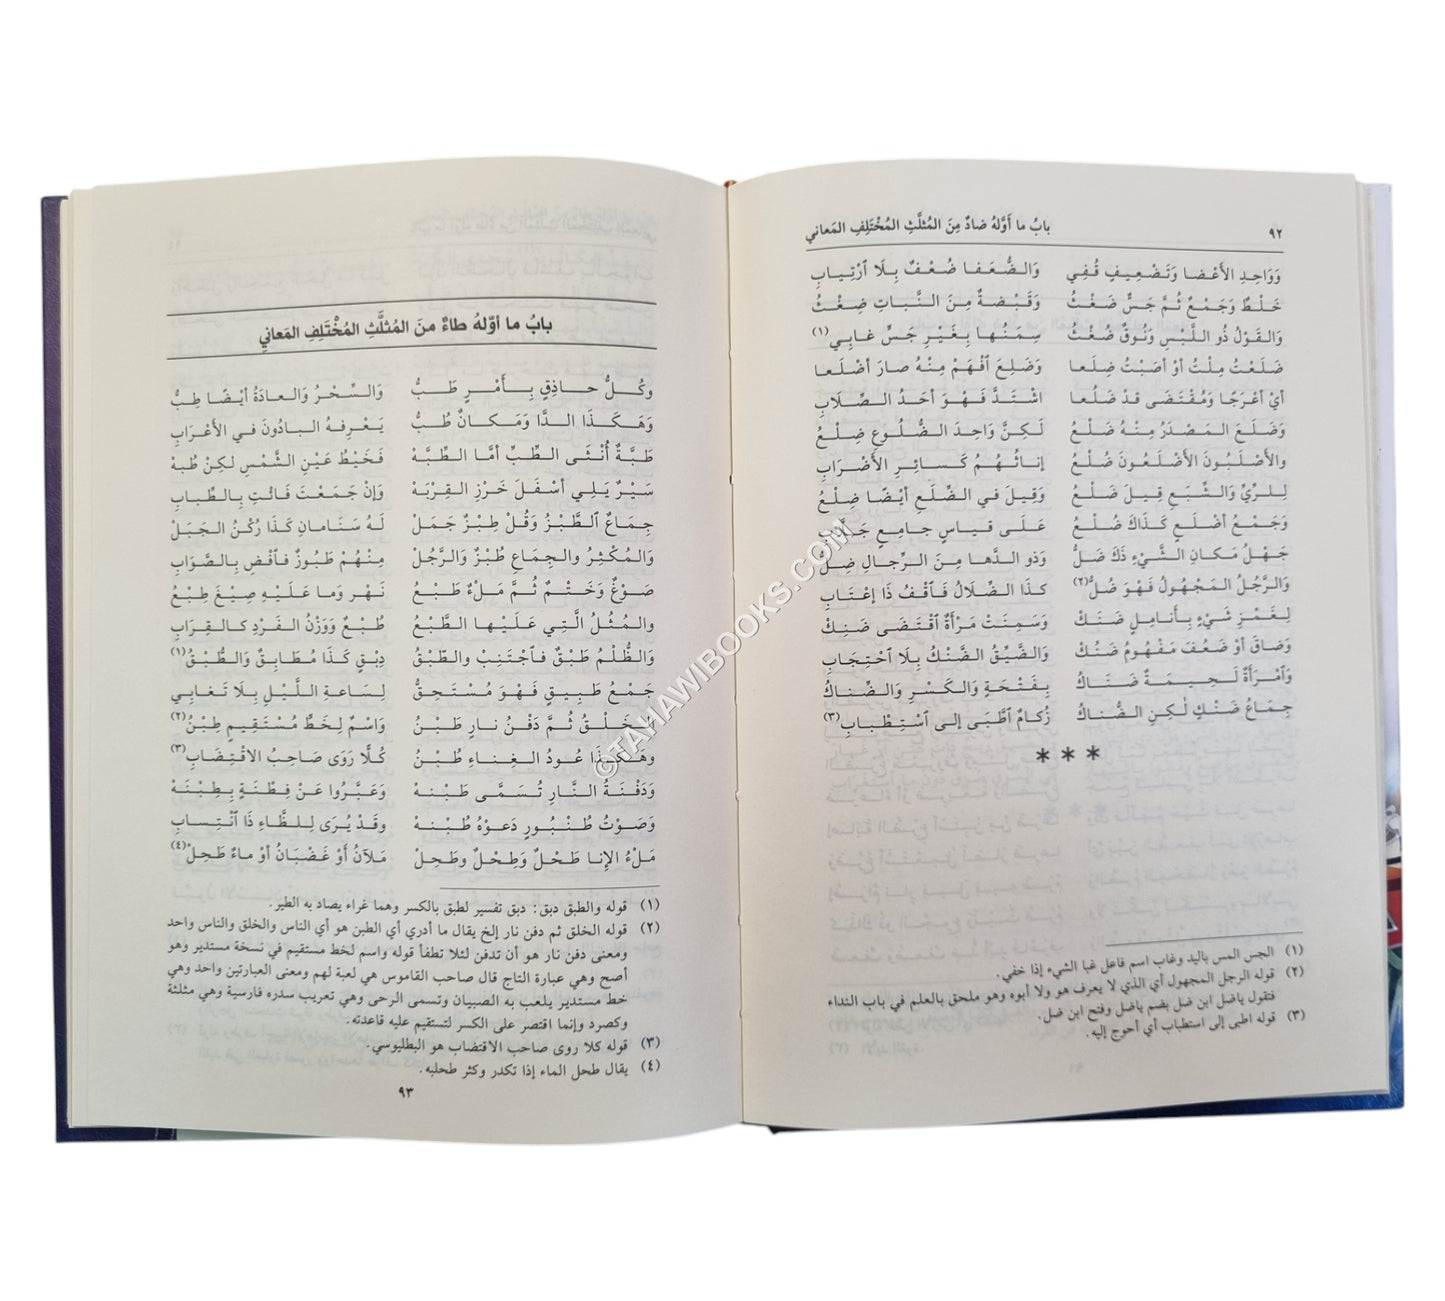 ٩٢
بابُ ما أَوَّلهُ ضادٌ مِنَ المُثلَّثِ المُخْتَلِفِ المَعاني
وَوَاحِدِ الأَعْضا وَتَضْعِيفٍ قُفِي وَالضُّعَفا ضُعْفٌ بِلَا ٱرْتِيابِ
خَلْطٌ وَجَمْعٌ ثُمَّ جَسٌّ ضَغْثُ وَقَبْضةٌ مِنَ النَّباتِ ضِغْثُ
وَالقَوْلُ ذُو اللَّبْسِ وَنُوقٌ ضُغْثُ سِمَنُها بِغَيْرِ جَسٍّ غابِي(١)
ضَلَعْتُ مِلْتُ أوْ أصَبْتُ ضِلعا وَضَلِعَ ٱفْهَمْ مِنْهُ صارَ أضْلَعا
أيْ أعْرَجًا وَمُقْتَضَى قدْ ضَلُعا اشْتَدَّ فَهْوَ أحَدُ الصِّلَابِ
وَضَلَعَ المَصْدَرُ مِنْهُ ضَلْعُ لَكِنَّ وَاحِدَ الضُّلُوعِ ضِلْعُ
والأَصْلَبُونَ الأَضْلَعُونَ ضُلْعُ إناثُهُمُ كَسائِرِ الأَضْرَابِ
لِلرِّيِّ وَالشِّبَعِ قِيلَ ضَلْعُ وَقِيلَ في الضِّلَعِ أيْضًا ضِلْعُ
وَجَمْعُ أضْلَعٍ كَذَاكَ ضُلْعُ عَلَى قياسٍ جامِعٍ جَلَّابِ
جَهْلُ مَكانِ الشَّيْءِ ذَكَ ضَلُّ وَذو الدَّها مِنَ الرِّجالِ ضِلُّ
وَالرَّجُلُ المَجْهُولُ فَهْوَ ضُلُّ(٢) كذا الضِّلالُ فَٱقْفُ ذَا إعْتابِ
لِغَمْزِ شَيْءٍ بِأَنامِلٍ ضَنَكْ وَسَمِنَتْ مَرْأةٌ ٱقْتَضَى ضَنِكْ
وَضَاقَ أوْ ضَعُفَ مَفْهُومُ ضَنُكْ وَالضَّيِّقُ الضَّنْكُ بِلَا ٱحْتِجَابِ
وَٱمْرَأةٌ لَحِيمَةٌ ضَنَاكُ بِفَتْحَةٍ وَالكَسْرِ وَالضِّناكُ
جِماعُ ضَنْكٍ لٰكِنِ الضُّناكُ زُكامٌ ٱطَّبَى إلى ٱسْتِطْبابِ(٣)
***
(١) الجس المس باليد وغاب اسم فاعل غبا الشيء إذا خفي.
(٢) قوله الرجل المجهول أي الذي لا يعرف هو ولا أبوه وهو ملحق بالعلم في باب النداء
فتقول ياضل ابن ضل بضم ياضل وفتح ابن ضل.
(٣) قوله اطبى إلى استطباب أي أحوج إليه.
بابُ ما أوّلهُ طاءٌ منَ المُثلَّثِ المُخْتَلِفِ المَعاني
وكُلُّ حاذِقٍ بِأَمْرٍ طَبُّ وَالسِّحْرُ وَالعادَةُ أيْضًا طِبُّ
وَهَكَذَا الدَّا وَمَكانٌ طُبُّ يَعْرِفهُ البادُونَ في الأَعْرَابِ
طَبَّةٌ أُنْثَى الطِّبِّ أمَّا الطِّبَّهْ فَخَيْطُ عَيْنِ الشَّمْسِ لكِنْ طُبهْ
سَيْرٌ يَلِي أسْفَلَ خَرْزِ القِرْبَهْ وَإنْ جَمَعْتَ فَائْتِ بِالطِّبابِ
جِماعٌ ٱلطَّبْزُ وَقُلْ طِبْزٌ جَمَلْ لَهُ سَنَامانِ كَذَا رُكْنُ الجَبَلْ
وَالمُكْثِرُ والجِمَاعِ طُبْزٌ وَالرَّجُلْ مِنْهُمْ طَبُوزٌ فٱقْضِ بِالصَّوَابِ
صَوْغٌ وَخَتْمٌ ثُمَّ مَلْءٌ طَبْعُ نَهْر وَما عَلَيْهِ صِيْغَ طِبْعُ
والمُثُلُ الَّتِي عَلَيْها الطَّبْعُ طُبْعٌ وَوَزْنُ الفَرْدِ كالقِرَابِ
وَالظُّلْمُ طَبْقٌ فٱجْتَنِبْ والطِّبْقُ دِبْقٍ كَذَا مُطَابِقٌ وَالطُّبْقُ(١)
جَمْعُ طَبِيقٍ فَهْوَ مُسْتَحِقُّ لِسَاعةِ اللَّيْلِ بِلَا تَغابِي
لِلخَلْقُ ثُمَّ دَفْنُ نارٍ طَبْنُ وَاسْمٌ لِخَطٍّ مُسْتَقِيمٍ طِبْنُ(٢)
وهَكَذَا عُودُ الغِناءِ طُبْنُ كُلًّا رَوَى صَاحِبُ الاقْتِضَابِ(٣)
وَدَفْنَةُ النَّارِ تُسَمَّى طَبْنهْ وَعَبَّرُوا عَنْ فِطْنَةٍ بِطِبْنَهْ
وَصَوْتُ طُنْبُورٍ دَعَوْهُ طُبْنهْ وقَدْ يُرَى لِلظَّاءِ ذَا ٱنْتِسابِ
مَلْءُ الإنا طَحْلٌ وَطِحْلٌ وطَحِلْ مَلآنُ أَوْ غَضْبَانُ أوْ ماءٌ طَحِلْ(٤)
(١) قوله والطبق دبق: دبق تفسير لطبق بالكسر وهما غراء يصاد به الطير.
(٢) قوله الخلق ثم دفن نار إلخ يقال ما أدري أي الطبن هو أي الناس والخلق والناس واحد
ومعنى دفن نار هو أن تدفن لئلا تطفأ قوله واسم لخط مستقيم في نسخة مستدير وهو
أصح وهي عبارة التاج قال صاحب القاموس هي لعبة لهم ومعنى العبارتين واحد وهي
خط مستدير يلعب به الصبيان وتسمى الرحى وهي تعريب سدره فارسية وهي مثلثة
وكصرد وإنما اقتصر على الكسر لتستقيم عليه قاعدته.
(٣) قوله كلا روى صاحب الاقتضاب هو البطليوسي.
(٤) يقال طحل الماء إذا تكدر وكثر طحلبه.
٩٣
©TAHAWIBOOKS.COM